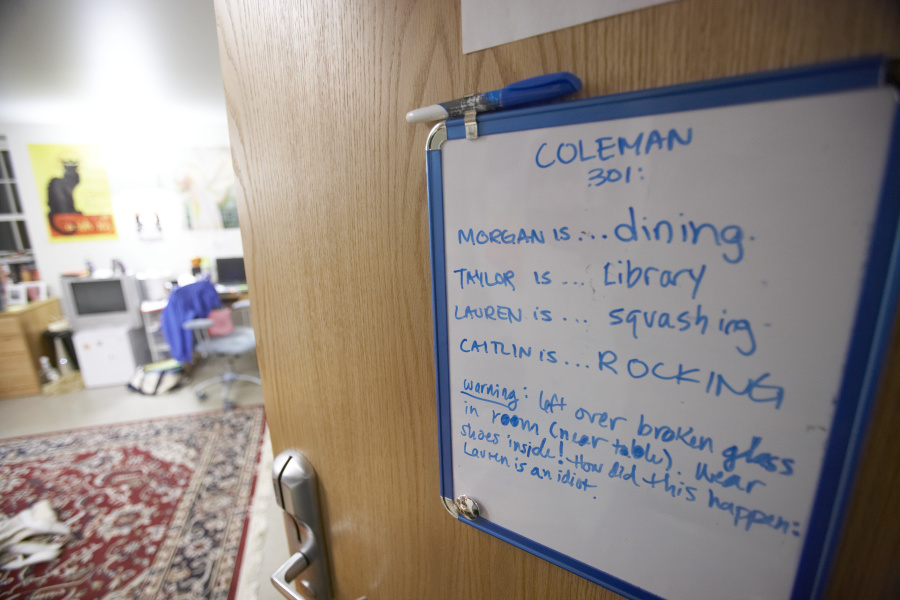 COLEMAN
301:
MORGAN IS... dining.
TAYLOR IS... Library
LAUREN is... squashing.
CAITLIN is... ROCKING
warning: left over broken glass
in room (near table). Wear
shoes inside! How did this happen:
Lauren is an idiot.